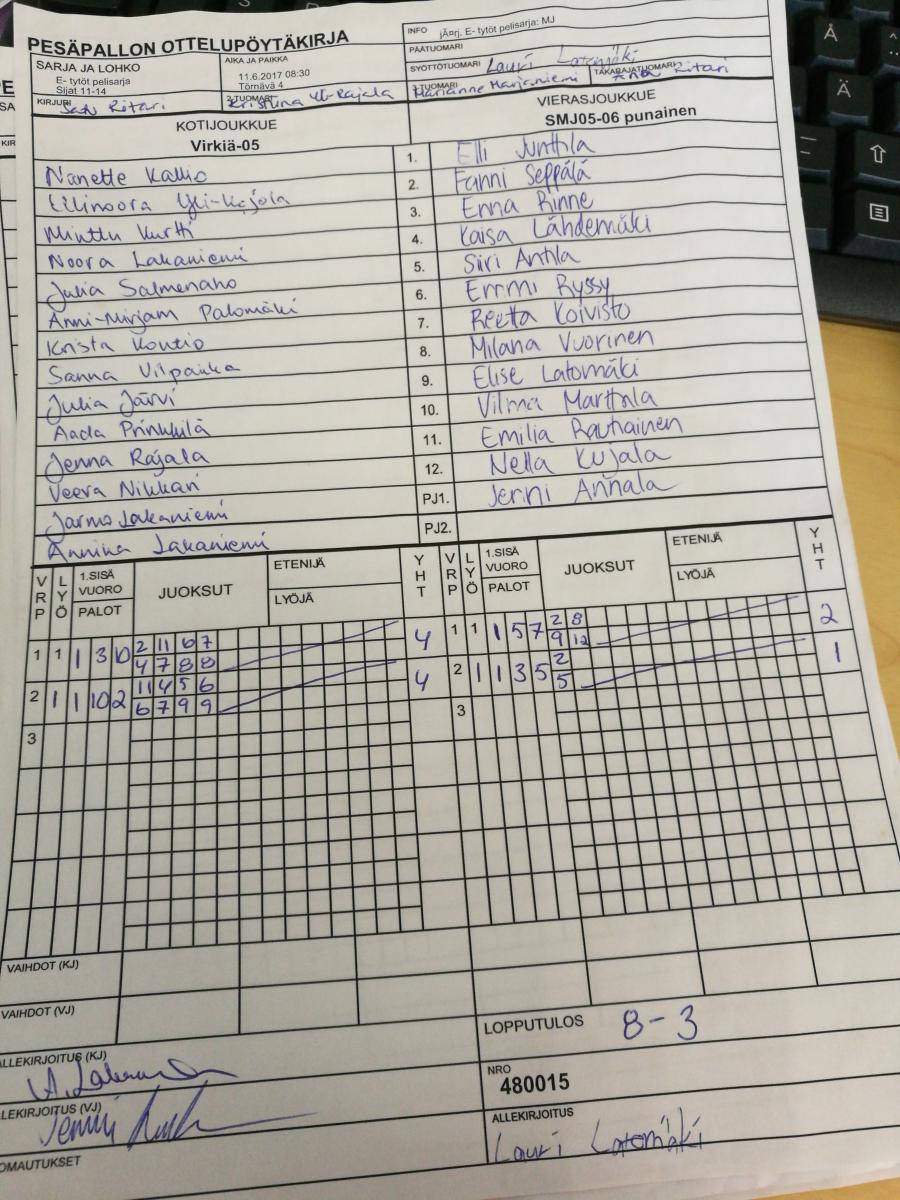 PESÄPALLON OTTELUPÖYTÄKIRJA
INFO jÃ¤rj. E- tytöt pelisarja: MJ
PÄÄTUOMARI
SARJA JA LOHKO
E- tytöt pelisarja
Sijat 11-14
AIKA JA PAIKKA
11.6.2017 08:30
Törnävä 4
SYÖTTÖTUOMARI Lauri Latomäki
TAKARAJATUOMARI Ritari
KIRJURI Ritari
2-TUOMARI Kristiina Yli-Rajala
3-TUOMARI Marianne Marjaniemi
KOTIJOUKKUE
Virkiä-05
VIERASJOUKKUE
SMJ05-06 punainen
Nanette Kallio
1. Elli Junttila
Yli-Rajala
2. Fanni Seppälä
Minttu Kurtti
3. Enna Rinne
Noora Lakaniemi
4. Kaisa Lähdemäki
Julia Salmenaho
5. Siiri Antila
Anni-Mirjam Palomäki
6. Emmi Ryssy
Krista Kontio
7. Reetta Koivisto
Sanna
8. Milana Vuorinen
Julia Järvi
9. Elise Latomäki
Aada
10. Vilma Marttala
Jenna Rajala
11. Emilia Rauhainen
Veera Nikkari
12. Nella Kujala
Jarmo Lakaniemi
PJ1. Jenni Annala
Annina Lakaniemi
PJ2.
VRP LYÖ 1.SISÄ VUORO PALOT JUOKSUT ETENIJÄ LYÖJÄ YHT
VRP LYÖ 1.SISÄ VUORO PALOT JUOKSUT ETENIJÄ LYÖJÄ YHT
1 1 1 3 10 2 11 6 7 4
4 7 8 8
1 1 1 5 7 2 8 2
9 12
2 1 1 10 2 11 4 5 6 4
6 7 9 9
2 1 1 3 5 2 1
5
3
3
VAIHDOT (KJ)
VAIHDOT (VJ)
LOPPUTULOS 8-3
ALLEKIRJOITUS (KJ)
NRO
480015
LEKIRJOITUS (VJ) Jenni
ALLEKIRJOITUS
Lauri Latomäki
OMAUTUKSET